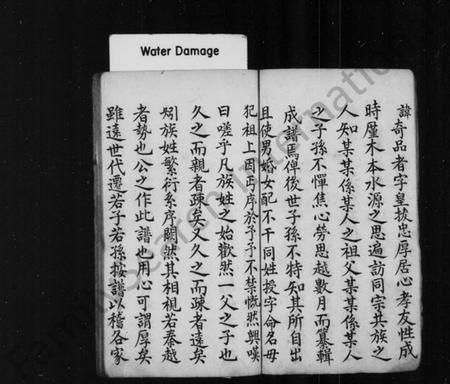 Water Damage
諱奇品者字皇拔忠厚居心孝友性成
時厪木本水源之思遍訪同宗共族之
人知某某係某人之祖父某某係某人
之子孫不憚焦心勞思越數月而纂輯
成譜焉俾後世子孫不特知其所自出
且使男婚女配不干同姓授字命名毋
犯祖上因丐序於予予不禁慨然興嘆
曰嗟乎凡族姓之始歡然一父之子也
久之而親者疎矣又久之而疎者遠矣
矧族姓繁衍系序闕然其相視若秦越
者勢也公之作此譜也用心可謂厚矣
雖遠世代遷若子若孫按譜以稽各家